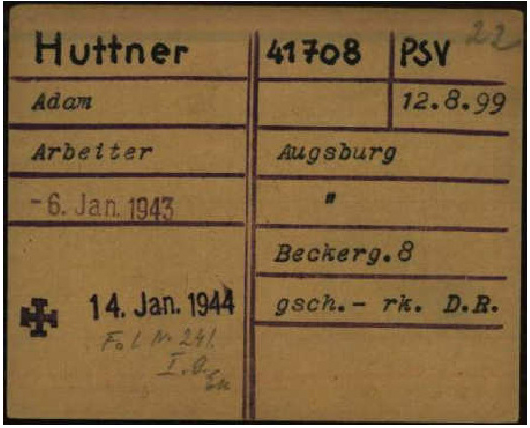 22
Huttner 41708 PSV
Adam 12.8.99
Arbeiter Augsburg
-6. Jan. 1943 "
Beckerg. 8
14. Jan. 1944 gsch.- rk. D.R.
241